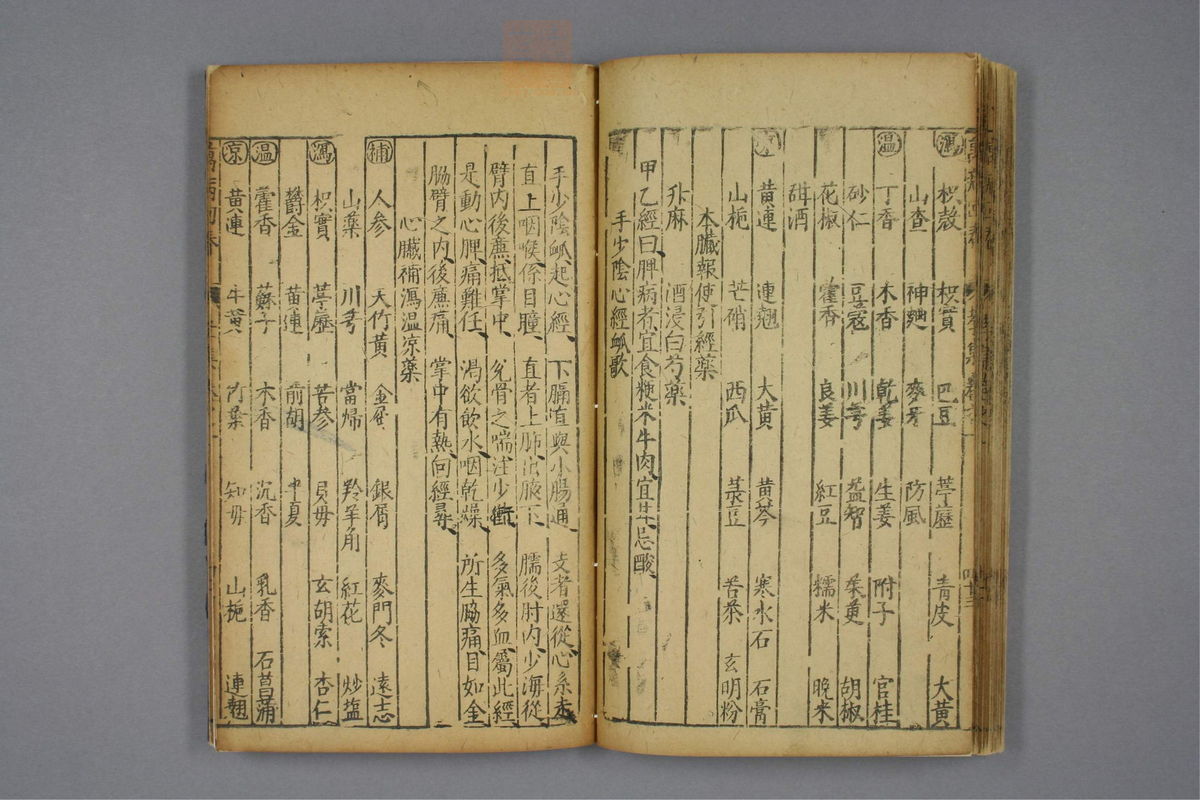 瀉 枳殼 枳實 巴豆 葶藶 青皮 大黃
山查 神麯 麥芽 防風
溫 丁香 木香 乾姜 生姜 附子 官桂
砂仁 豆蔻 川芎 益智 茱萸 胡椒
花椒 藿香 良姜 紅豆 糯米 晚米
甜酒
黃連 連翹 大黃 黃芩 寒水石 石膏
山梔 芒硝 西瓜 菉豆 苦茶 玄明粉
本臟報使引經藥
升麻 酒浸白芍藥
甲乙經曰脾病者宜食粳米牛肉宜甘忌酸
手少陰心經脉歌
手少陰脉起心經 下膈直與小腸通 支者還從心系走
直上咽喉係目瞳 直者上肺出腋下 臑後肘內少海從
臂內後廉抵掌中 兌骨之端注少衝 多氣多血屬此經
是動心脾痛難任 渴欲飲水咽乾燥 所生脇痛目如金
脇臂之內後廉痛 掌中有熱向經尋
心臟補瀉溫凉藥
補 人参 天竹黃 金屑 銀屑 麥門冬 遠志
山藥 川芎 當歸 羚羊角 紅花 炒塩
瀉 枳實 葶藶 苦参 貝母 玄胡索 杏仁
欝金 黃連 前胡 半夏
溫 藿香 蘇子 木香 沉香 乳香 石菖蒲
京 黃連 牛黃 竹葉 知母 山梔 連翹
萬病回春